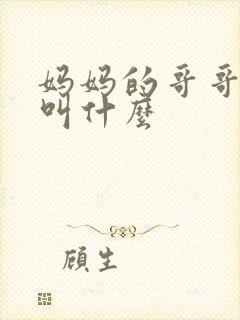 妈妈的哥哥
叫什麼
顧生